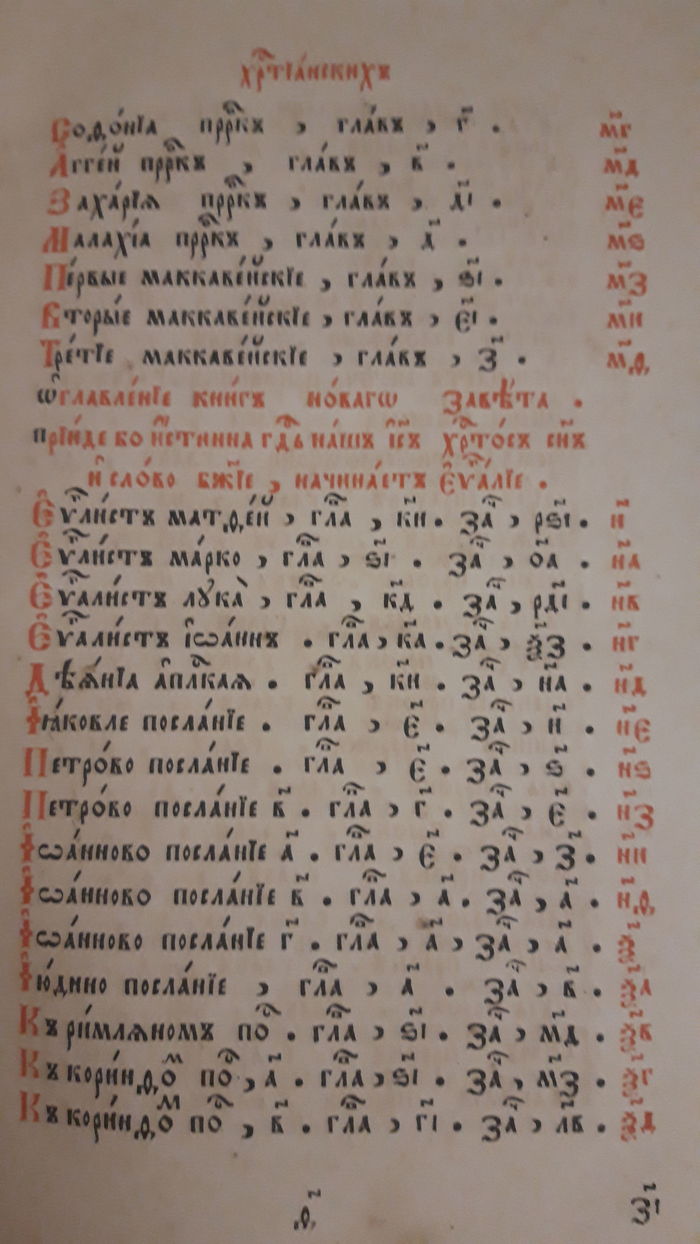 хрⷭ҇тїа́нскихъ
Софо́нїа прⷪ҇ркъ , гла́въ , г҃ . м҃г
Агге́й прⷪ҇ркъ , гла́въ , в҃ . м҃д
Заха́рїѧ прⷪ҇ркъ , гла́въ , д҃і . м҃є
Малахі́а прⷪ҇ркъ , гла́въ , д҃ . м҃ѕ
Пе́рвые маккаве́йскїе , гла́въ , ѕ҃і . м҃з
Вторы́е маккаве́йскїе , гла́въ , є҃і . м҃и
Тре́тїе маккаве́йскїе , гла́въ , з҃ . м҃ѳ
ѡ҆главле́нїе кни́гъ но́вагѡ завѣ́та .
прїи́де бо и҆́стинна гдⷭ҇ь на́шъ і҆и҃съ хрⷭ҇то́съ сн҃ъ
и҆ сло́во бж҃їе , начина́етъ є҆ѵⷢ҇а́лїе .
Є҆ѵⷢ҇ли́стъ матѳе́й , глⷡ҇а , к҃и . заⷱ҇ , рѕ҃і . н҃
Є҆ѵⷢ҇ли́стъ ма́рко , глⷡ҇а , ѕ҃і . заⷱ҇ , о҃а . н҃а
Є҆ѵⷢ҇али́стъ лꙋка̀ , глⷡ҇а , к҃д . заⷱ҇ , рд҃і . н҃в
Є҆ѵⷢ҇али́стъ і҆ѡа́ннъ . глⷡ҇а , к҃а . заⷱ҇ , ѯ҃з . н҃г
Дѣѧ́нїа а҆пⷭ҇лкаѧ . глⷡ҇а , к҃и . заⷱ҇ , н҃а . н҃д
І҆ꙗ́ковле посла́нїе . глⷡ҇а , є҃ . заⷱ҇ , и҃ . н҃є
Петро́во посла́нїе . глⷡ҇а , є҃ . заⷱ҇ , ѕ҃ . н҃ѕ
Петро́во посла́нїе в҃ . глⷡ҇а , г҃ . заⷱ҇ , є҃ . н҃з
І҆ѡа́нново посла́нїе а҃ . глⷡ҇а , є҃ . заⷱ҇ , з҃ . н҃и
І҆ѡа́нново посла́нїе в҃ . глⷡ҇а , а҃ . заⷱ҇ , а҃ . н҃ѳ
І҆ѡа́нново посла́нїе г҃ . глⷡ҇а , а҃ , заⷱ҇ , а҃ . ѯ҃
І҆ю́дино посла́нїе , глⷡ҇а , а҃ . заⷱ҇ , в҃ . ѯ҃а
Къ ри́млѧномъ поⷭ҇ . глⷡ҇а , ѕ҃і . заⷱ҇ , м҃д . ѯ҃в
Къ кори́нѳоⷨ поⷭ҇ , а҃ . глⷡ҇а , ѕ҃і . заⷱ҇ , м҃з . ѯ҃г
Къ кори́нѳоⷨ поⷭ҇ , в҃ . глⷡ҇а , г҃і . заⷱ҇ , л҃в . ѯ҃д
ѳ҃ з҃і